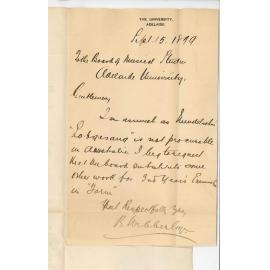 THE UNIVERSITY,
ADELAIDE.
Sept. 15. 1899
To the Board of Musical Studies
Adelaide University.
Gentlemen
I am as Mendelssohn
"Lobgesang" is not procurable
in Australia I beg to request
that the board substitute some
other work for 3rd Year's
in "Form"
Yours